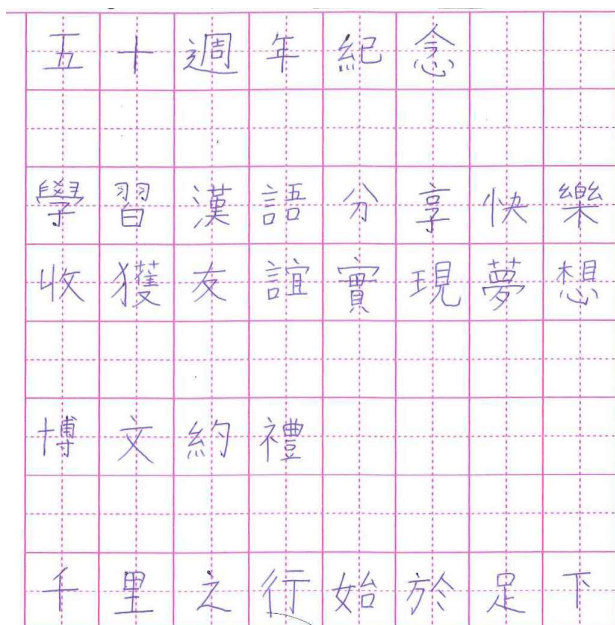 五十週年紀念
學習漢語分享快樂
收獲友誼實現夢想
博文約禮
千里之行始於足下